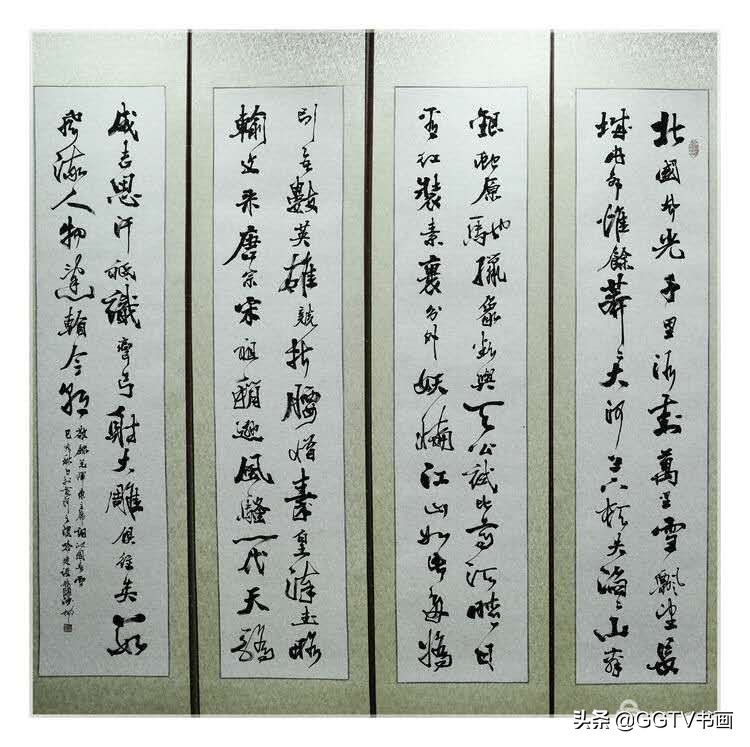 北國風光千里冰封萬里雪飄望長
城內外惟餘莽大河上下頓失滔〻山舞
銀蛇原馳蠟象欲與天公試比高須晴日
看紅裝素裹分外妖嬈江山如此多嬌
引無數英雄競折腰惜秦皇漢武略
輸文采唐宗宋祖稍遜風騷一代天驕
成吉思汗祗識彎弓射大雕俱往矣數
風流人物還看今朝
敬錄毛澤東主席詞沁園春雪
己亥秋
头条 @GGTV书画